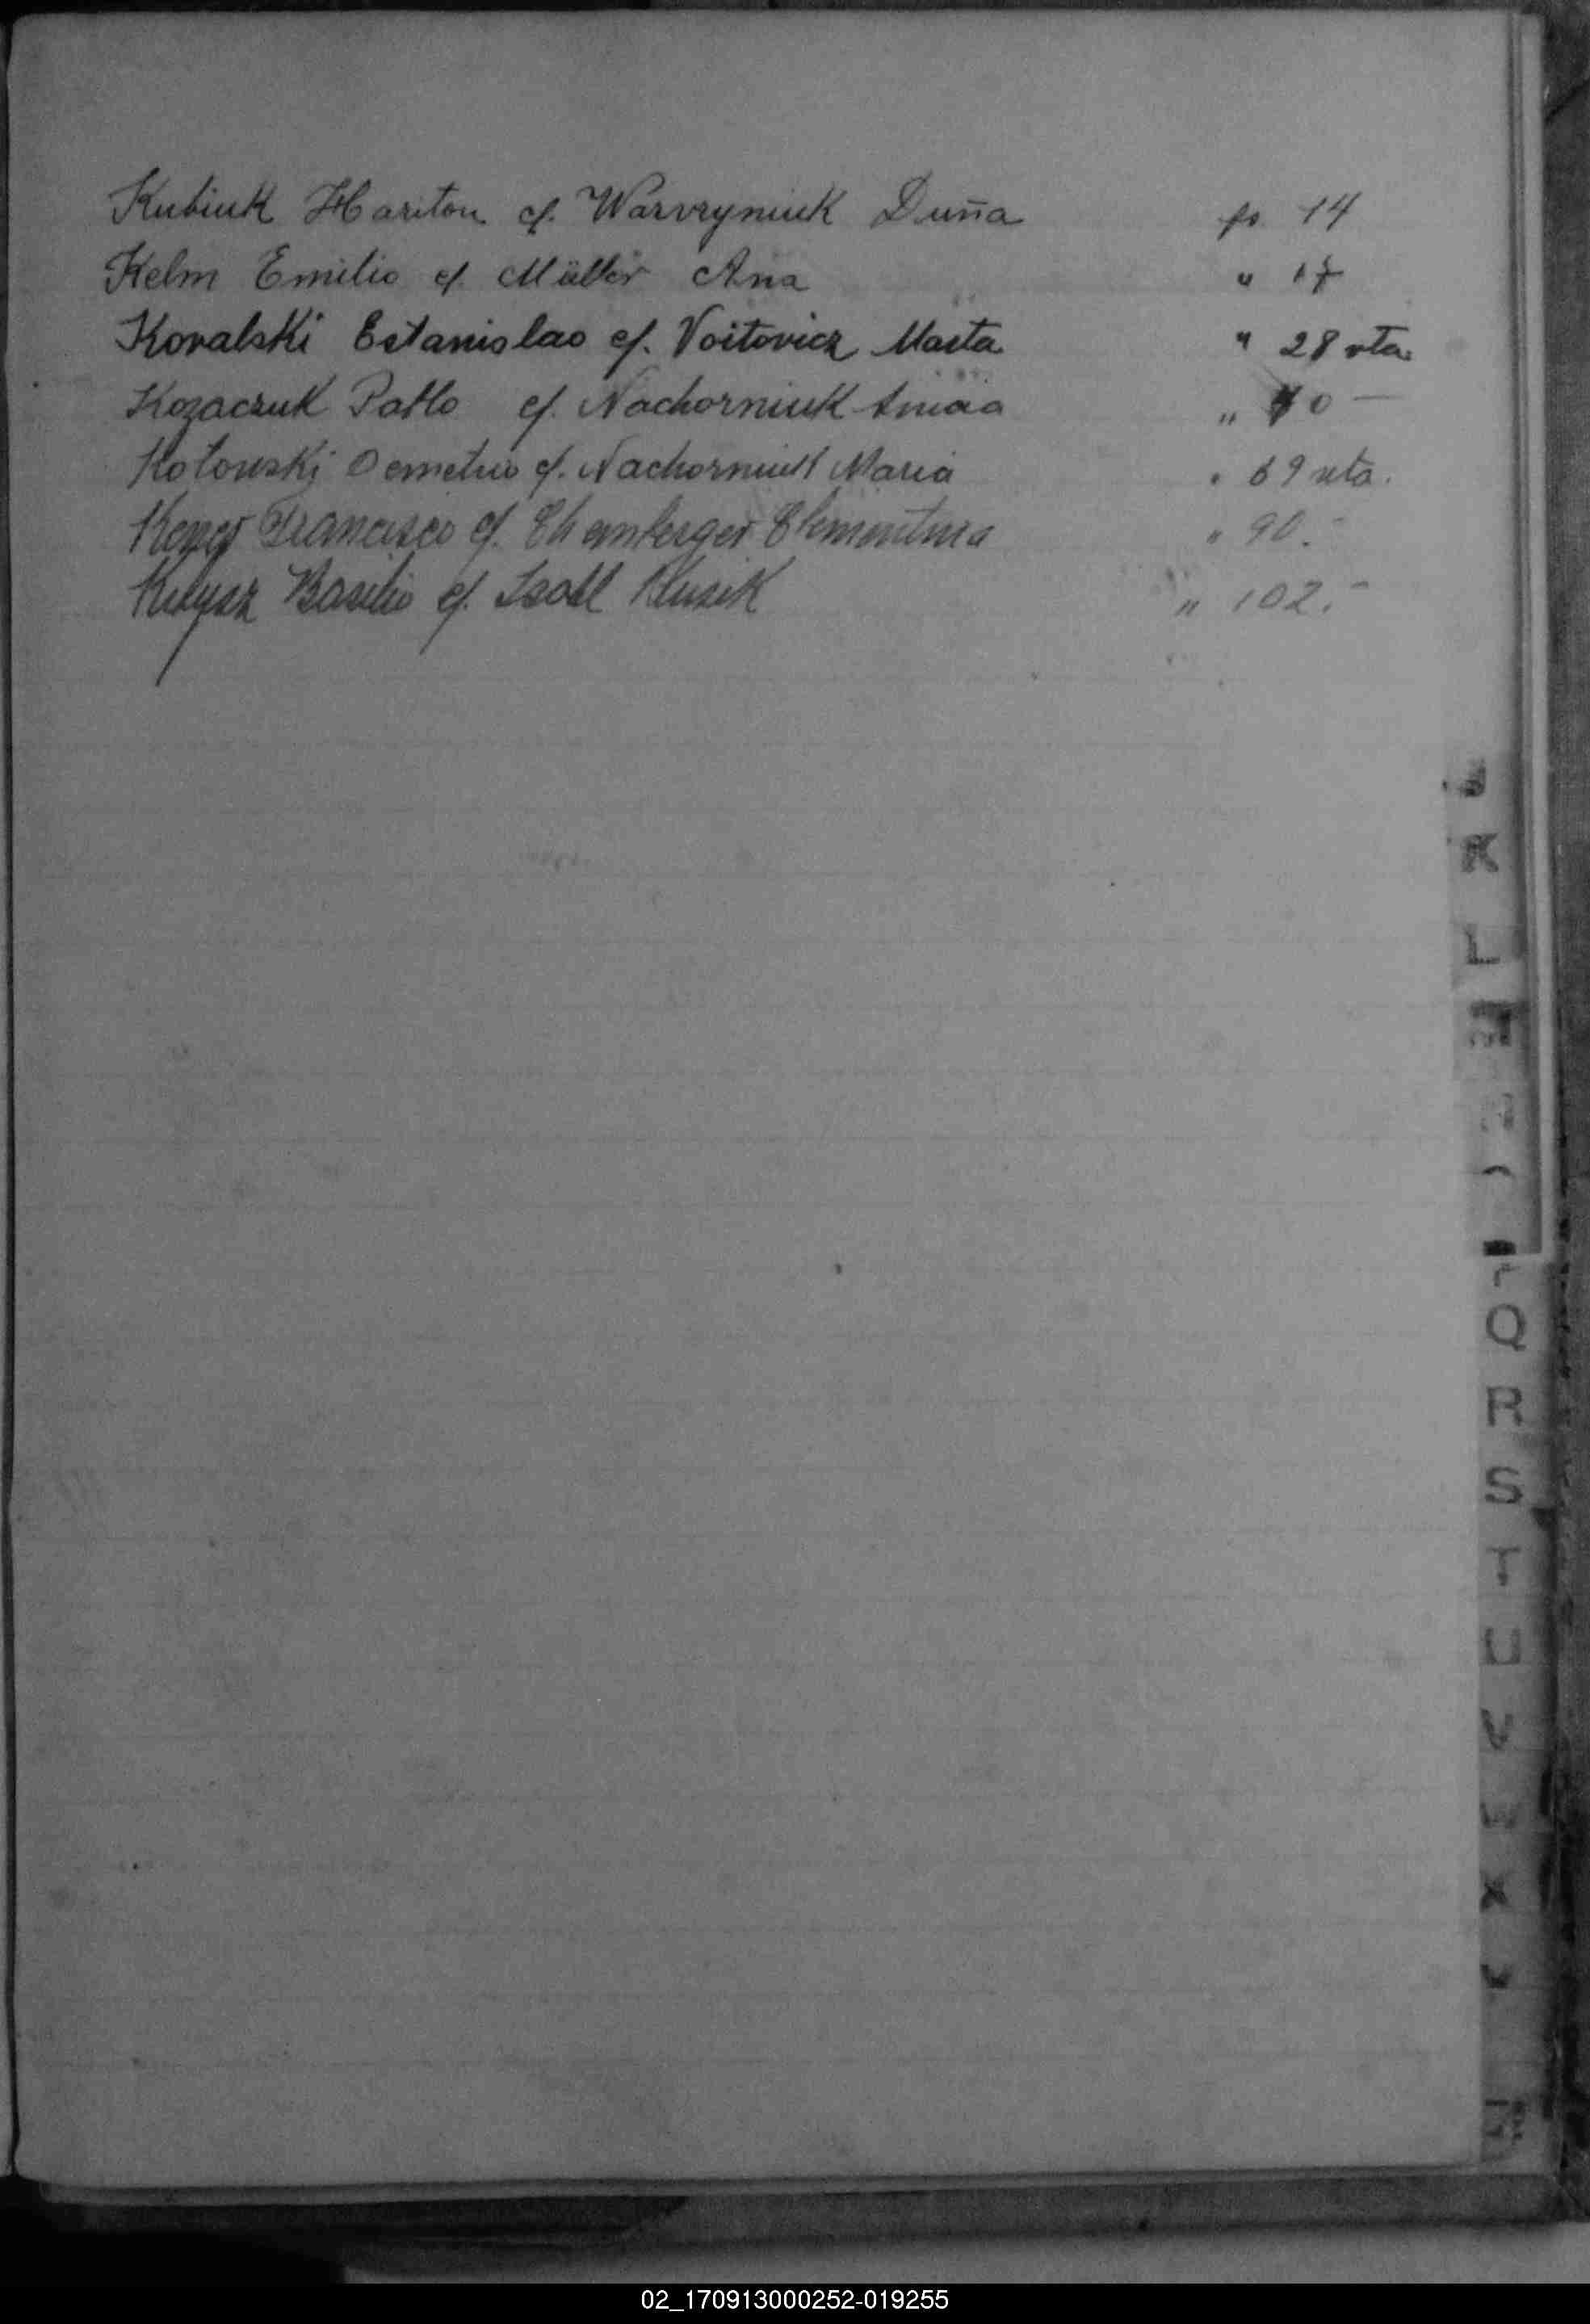 Kubiuk Hariton c/. Warvryniuk Duña fs. 14
Kelm Emilio c/. Müller Ana " 17
Kovalski Estanislao c/. Voitovicz Marta " 28 vta.
Kozaczuk Pablo c/. Nachorniuk " 40 —
Kotouski Demetrio c/. Nachorniuk Maria " 69 vta.
Francisco c/. Clementina " 90.-
Basilio c/. Kluzik " 102.-
J
K
L
M
Q
R
S
T
U
V
W
X
02_170913000252-019255